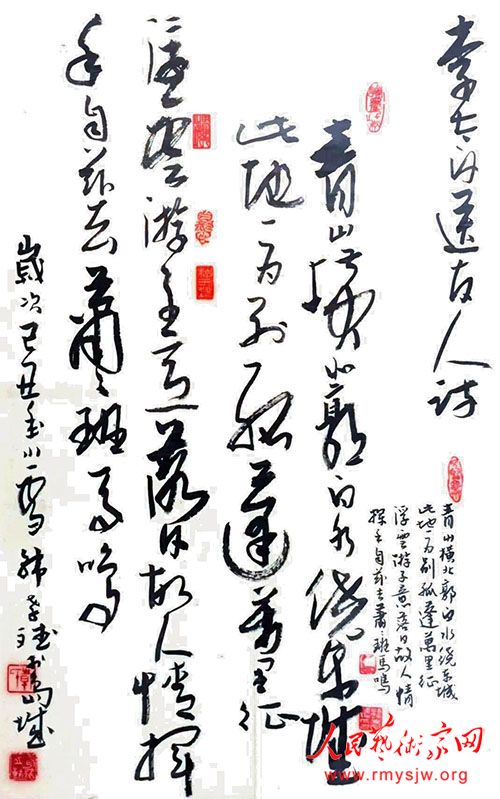 李太白送友人诗
青山横北郭白水绕东城
此地一为别孤蓬万里征
浮云游子意落日故人情挥
手自兹去萧々班马鸣
歲次己丑小雪
青山横北郭白水绕东城
此地一为别孤蓬萬里征
浮雲游子意落日故人情
挥手自兹去萧々班馬鳴
人民藝術家网
www.rmysjw.org